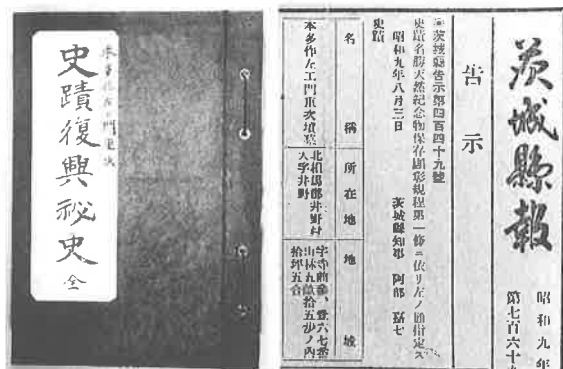 本多作左エ門重次
史蹟復興祕史 全
茨城縣報
昭和九年
第七百六十
告示
◎茨城縣告示第四百四十九號
史蹟名勝天然紀念物保存顯彰規程第一條ニ依リ左ノ通指定ス
昭和九年八月三日
茨城縣知事 阿部嘉七
史蹟
名稱
所在地
地域
本多作左エ門重次墳墓
北相馬郡井野村
大字井野
山林九畝拾五步ノ內
拾坪五合